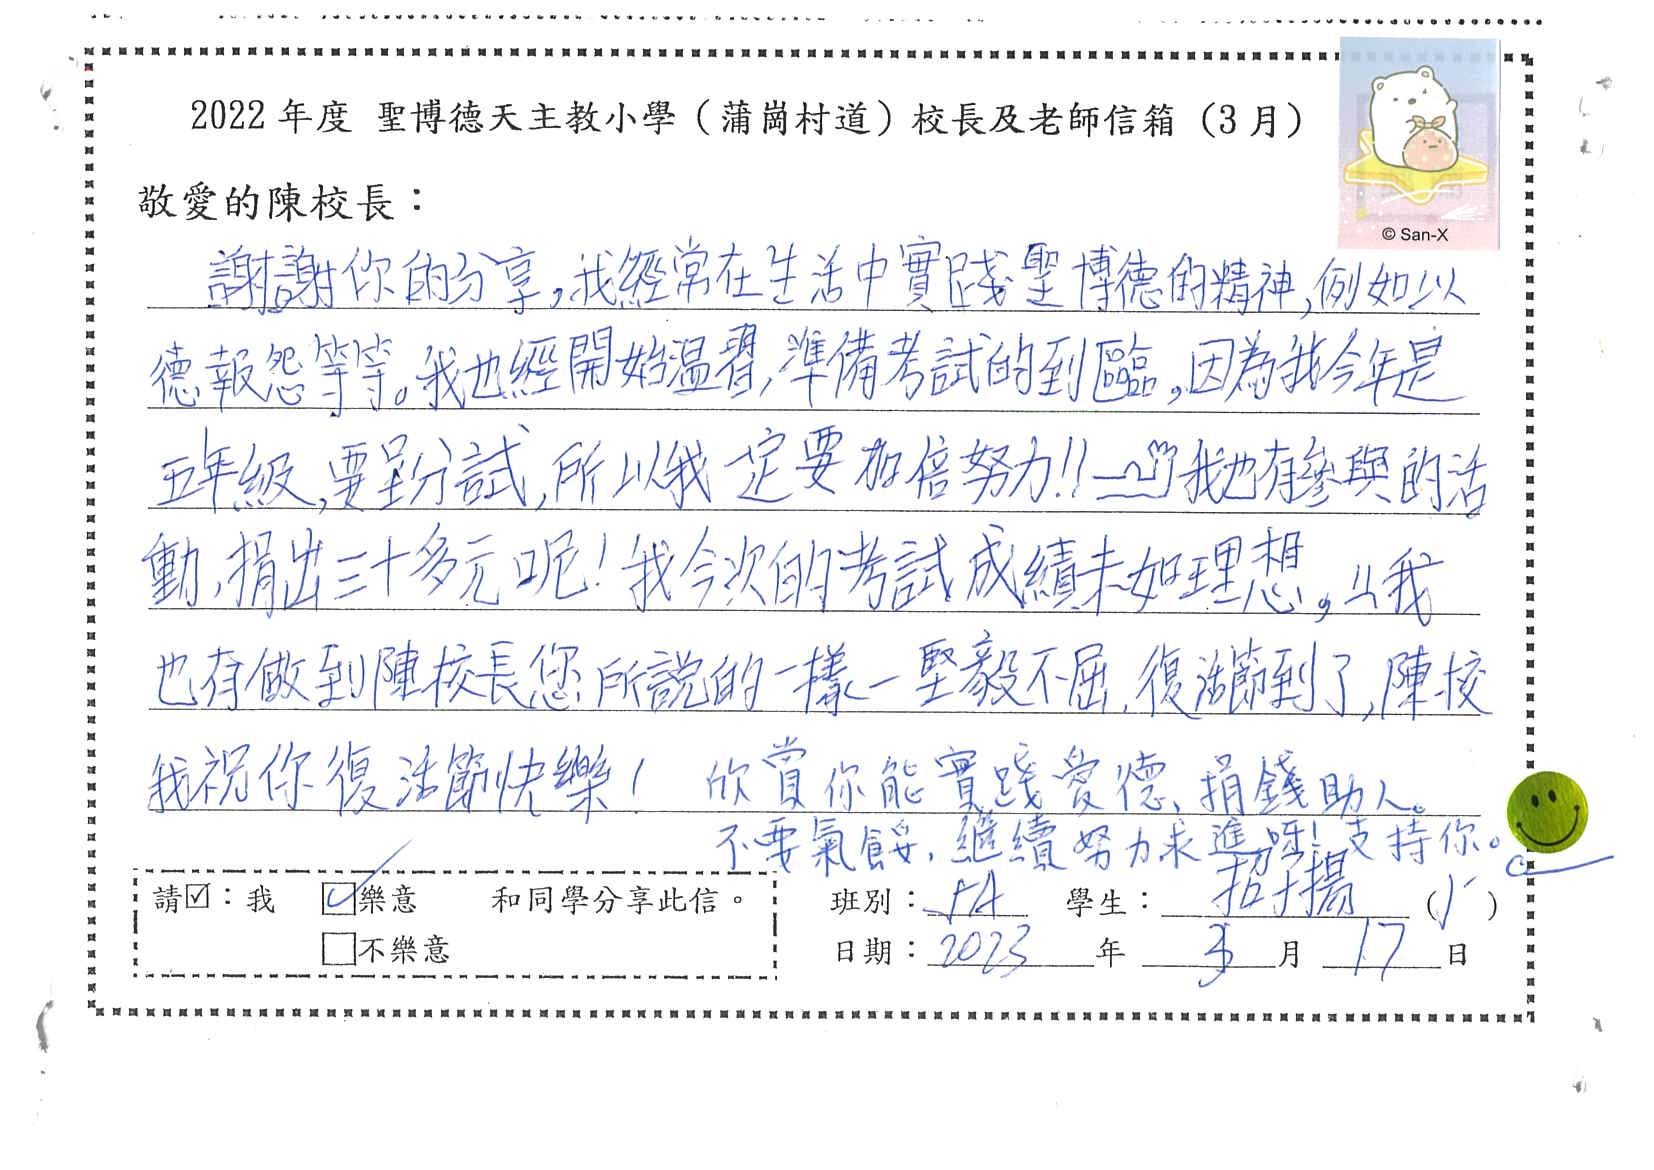 2022 年度 聖博德天主教小學（蒲崗村道）校長及老師信箱（3 月）
© San-X
敬愛的陳校長：
謝謝你的分享，我經常在生活中實踐聖博德的精神，例如以
德報怨等等。我也經開始溫習，準備考試的到臨，因為我今年是
五年級，要呈分試，所以我一定要加倍努力！！我也有參與的活
動，捐出三十多元呢！我今次的考試成績未如理想，但我
也有做到陳校長您所說的一樣－堅毅不屈，復活節到了，陳校
我祝你復活節快樂！ 欣賞你能實踐愛德、捐錢助人。
不要氣餒，繼續努力求進呀！支持你。
請☑：我 ☑樂意 和同學分享此信。
□不樂意
班別：5A 學生：招 揚 ( )
日期：2023 年 3 月 17 日